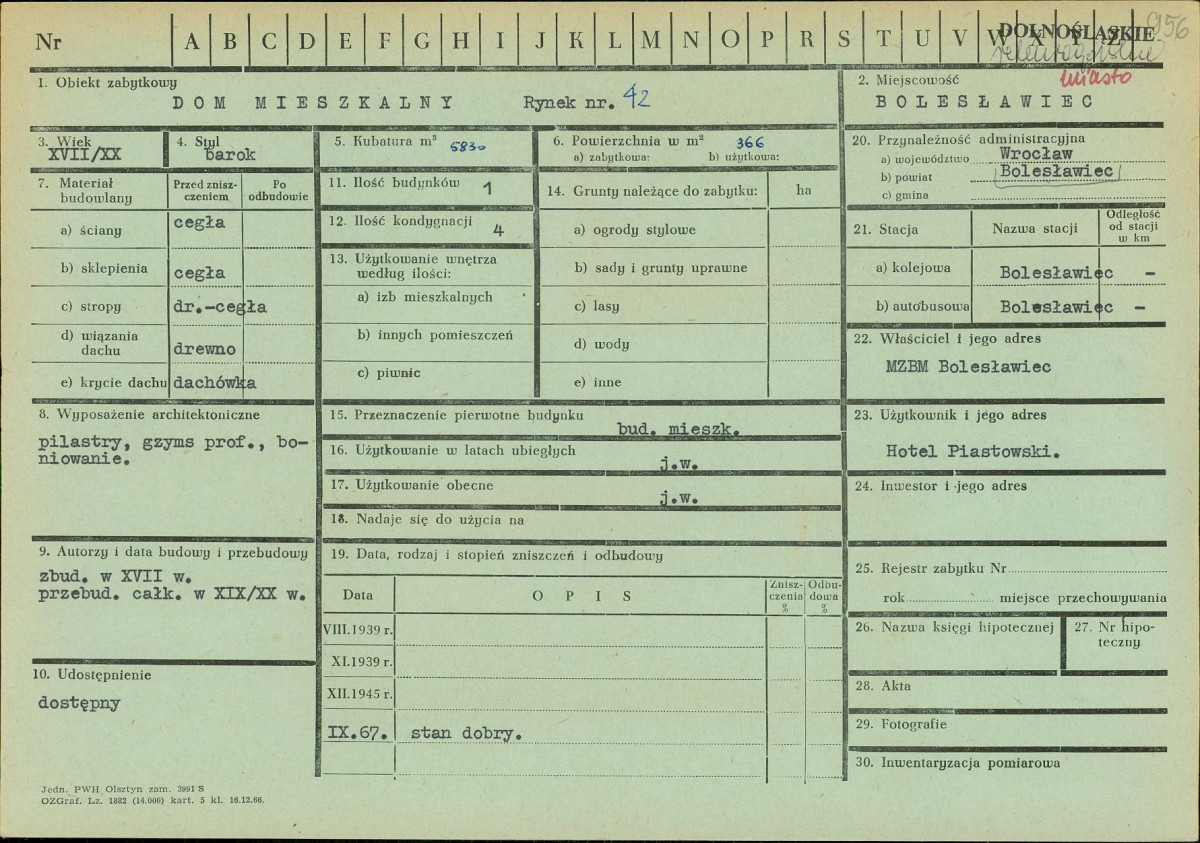 Nr A B C D E F G H I J K L M N O P R S T U V W X Y Z
DOLNOŚLĄSKIE
956
miasto
1. Obiekt zabytkowy
DOM MIESZKALNY Rynek nr. 42
2. Miejscowość
BOLESŁAWIEC
3. Wiek
XVII/XX
4. Styl
barok
5. Kubatura m³ 5830
6. Powierzchnia w m² 366
a) zabytkowa: b) użytkowa:
20. Przynależność administracyjna
a) województwo Wrocław
b) powiat Bolesławiec
c) gmina
7. Materiał
budowlany
Przed znisz-
czeniem
Po
odbudowie
a) ściany cegła
b) sklepienia cegła
c) stropy dr.-cegła
d) wiązania
dachu drewno
e) krycie dachu dachówka
11. Ilość budynków 1
12. Ilość kondygnacji 4
13. Użytkowanie wnętrza
według ilości:
a) izb mieszkalnych
b) innych pomieszczeń
c) piwnic
14. Grunty należące do zabytku: ha
a) ogrody stylowe
b) sady i grunty uprawne
c) lasy
d) wody
e) inne
21. Stacja Nazwa stacji
Odległość
od stacji
w km
a) kolejowa Bolesławiec -
b) autobusowa Bolesławiec -
22. Właściciel i jego adres
MZBM Bolesławiec
8. Wyposażenie architektoniczne
pilastry, gzyms prof., bo-
niowanie.
15. Przeznaczenie pierwotne budynku
bud. mieszk.
16. Użytkowanie w latach ubiegłych
j.w.
17. Użytkowanie obecne
j.w.
18. Nadaje się do użycia na
23. Użytkownik i jego adres
Hotel Piastowski.
24. Inwestor i jego adres
9. Autorzy i data budowy i przebudowy
zbud. w XVII w.
przebud. całk. w XIX/XX w.
19. Data, rodzaj i stopień zniszczeń i odbudowy
Data OPIS
Znisz-
czenia
%
Odbu-
dowa
%
VIII.1939 r.
XI.1939 r.
XII.1945 r.
IX.67. stan dobry.
25. Rejestr zabytku Nr
rok miejsce przechowywania
26. Nazwa księgi hipotecznej
27. Nr hipo-
teczny
10. Udostępnienie
dostępny
28. Akta
29. Fotografie
30. Inwentaryzacja pomiarowa
Jedn. PWH Olsztyn zam. 3991 S
OZGraf. Lz. 1882 (14.000) kart. 5 kl. 16.12.66.